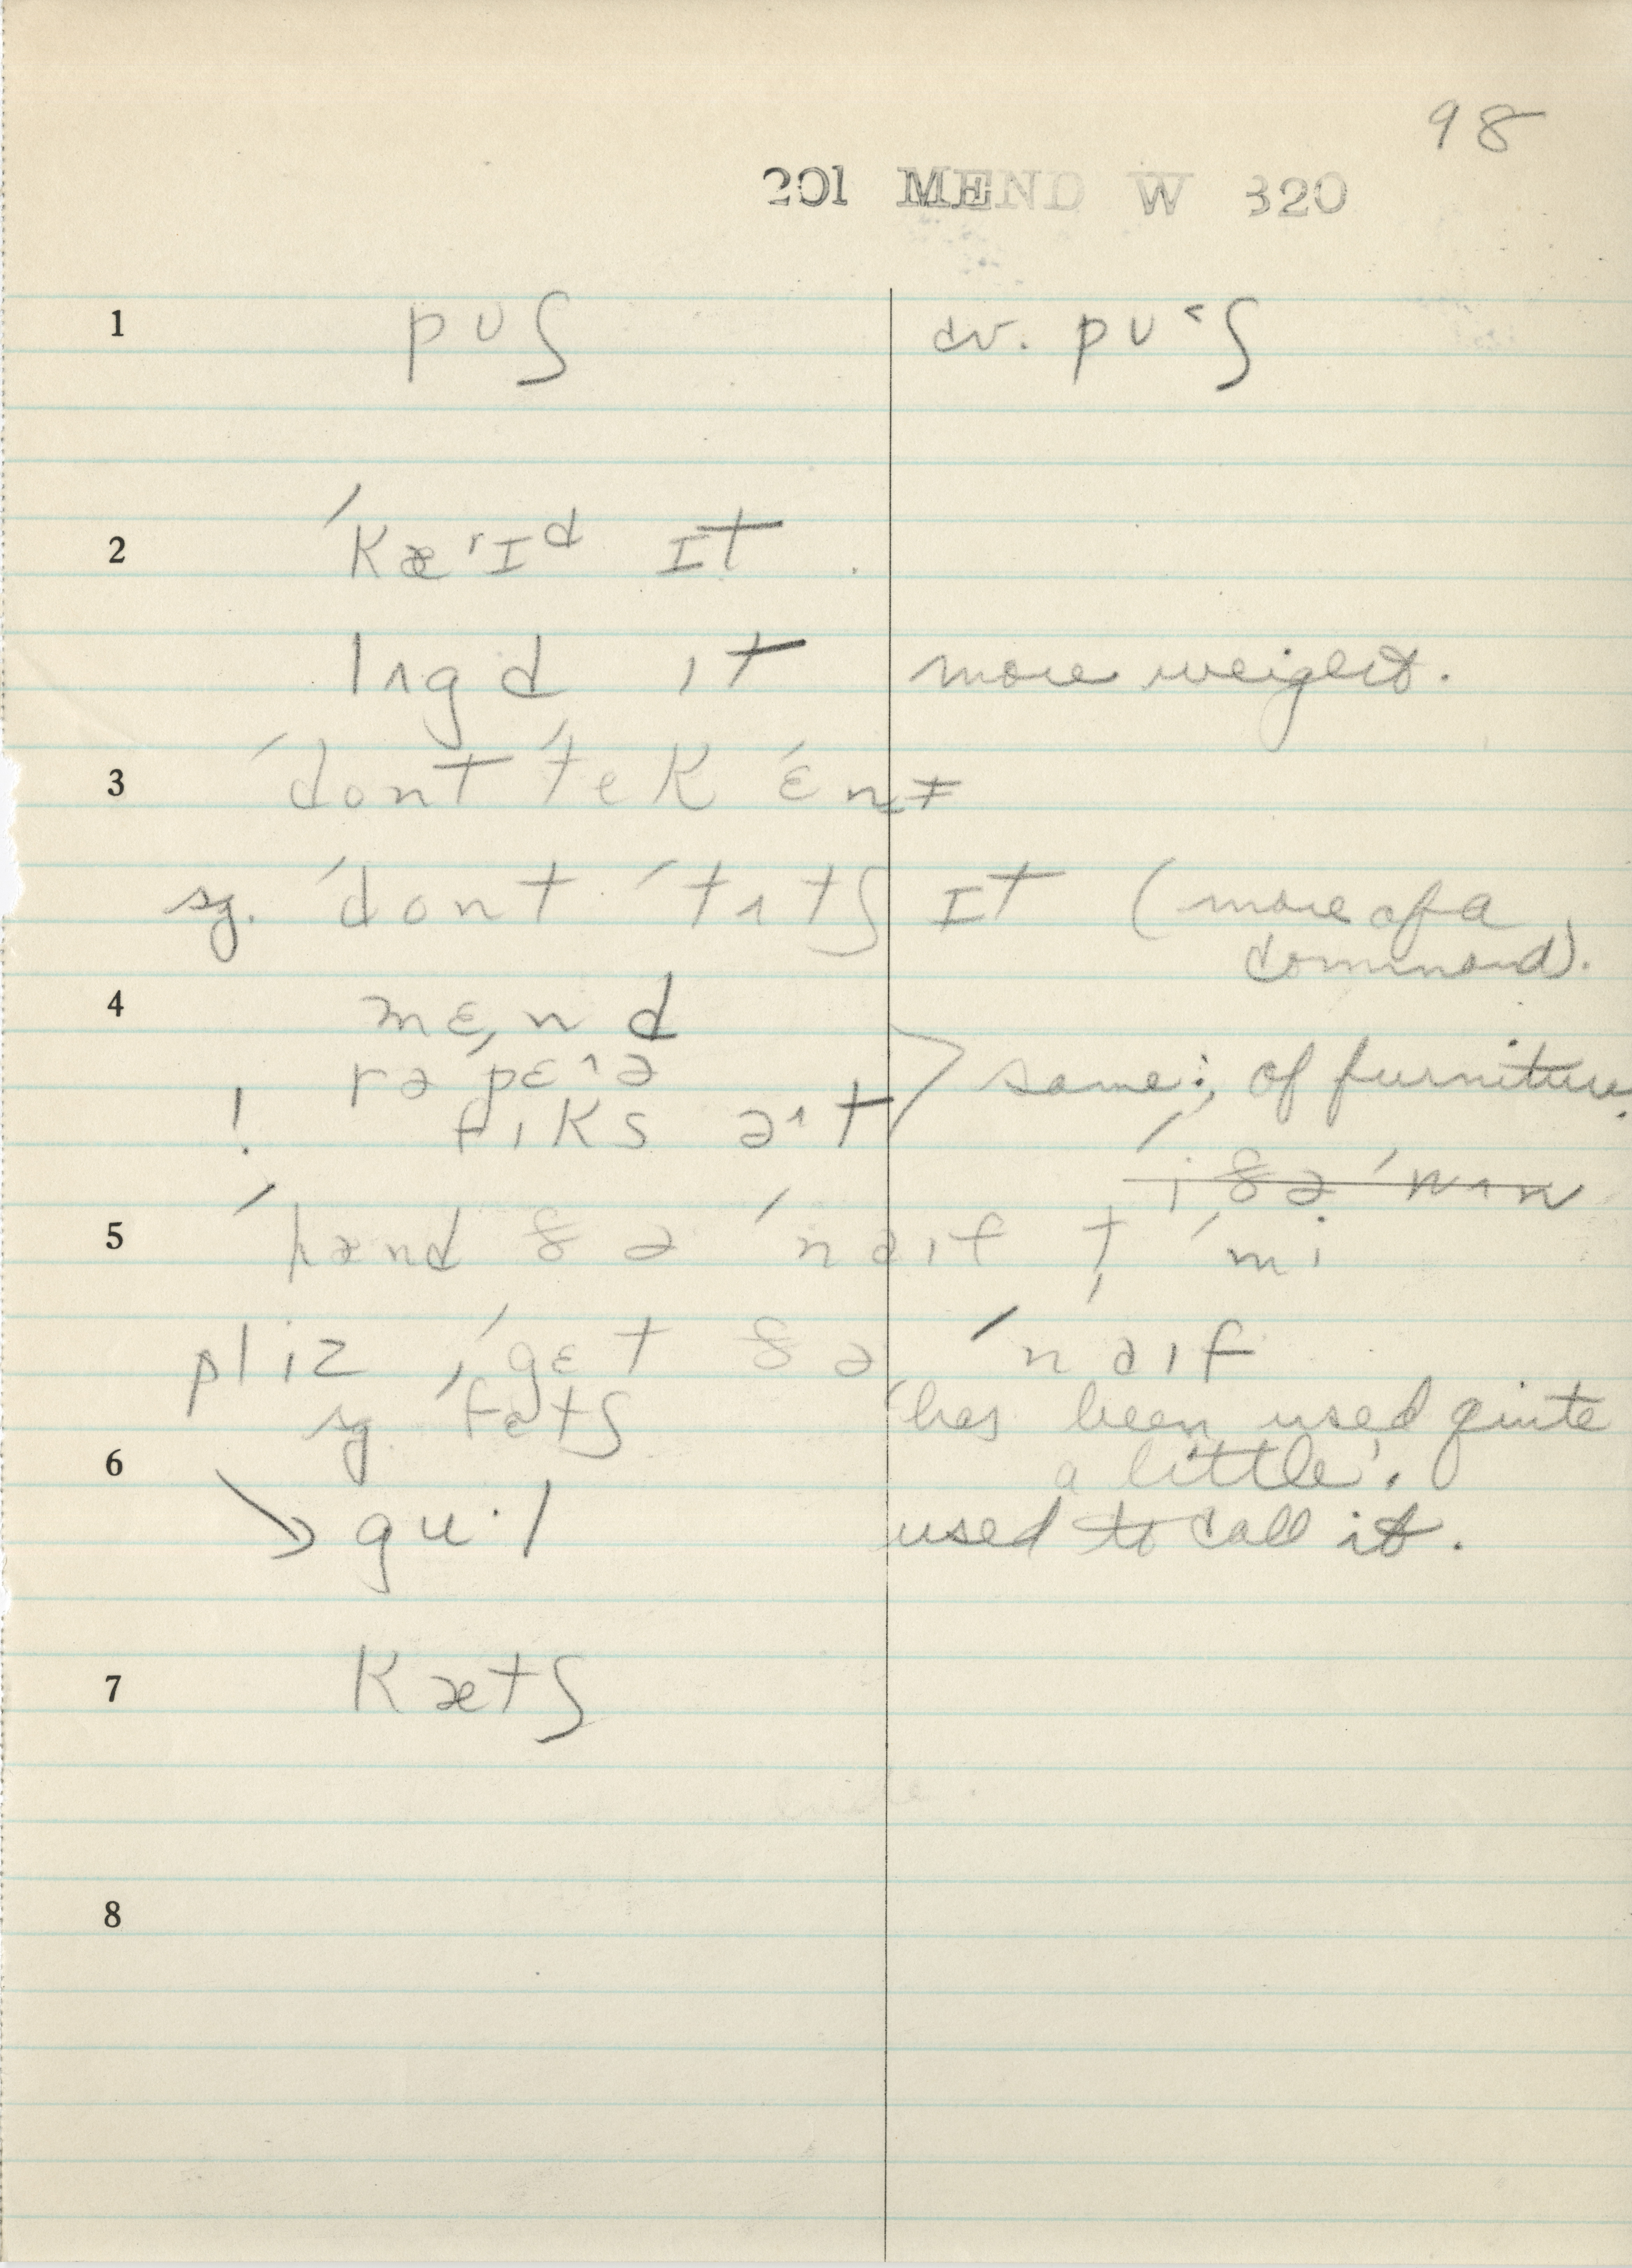 98
201 MEND W 320
1 pʊʃ cv. pʊ˂ʃ
2 ˈkæˈɪd ɪt .
lʌgd ɪt more weight.
3 ˈdont ˈtek ˈɛnɪ
sg. ˈdont ˈtʌtʃ ɪt (more of a
command).
4 mɛnd
rəˈpɛ˄ə same; of furniture.
! fɪks ə˄t
i ðə ˈmʌn
5 ˈhænd ðə ˈnaɪf t ˈmi
pliz ˈgɛt ðə ˈnaɪf
sg. ˈfɛtʃ 'has been used quite
6 a little'.
→ gu·l used to call it.
7 kætʃ
8